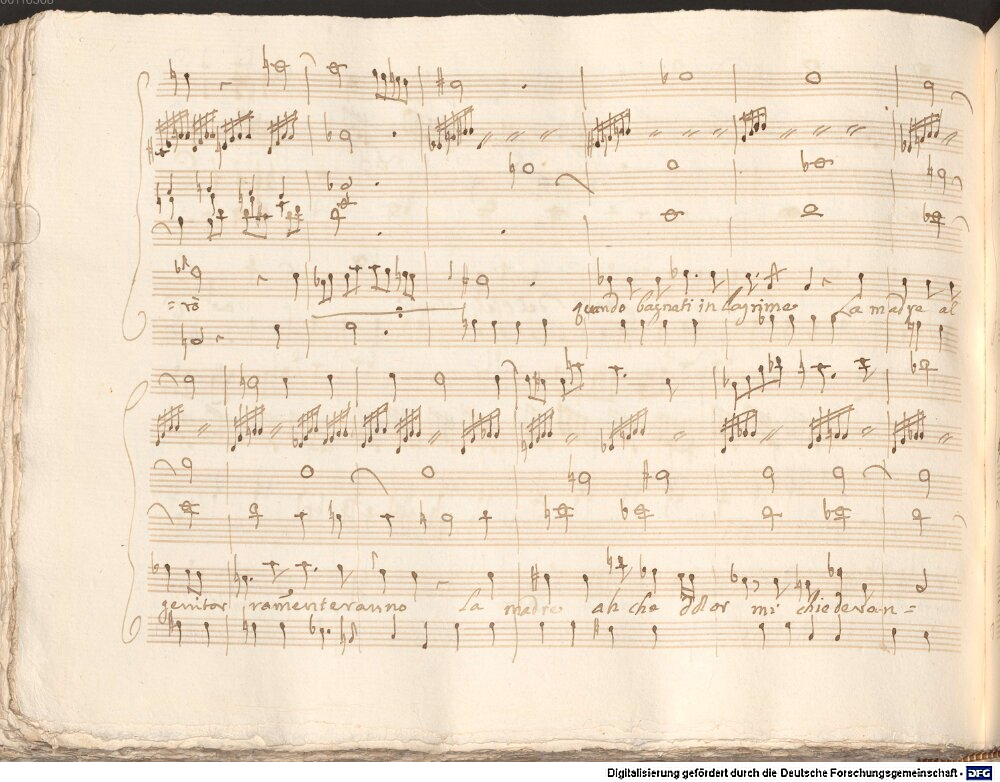 = rò quando bagnati in lagrime La madre al
genitor ramenteranno La madre ah che dolor mi chiederan =
Digitalisierung gefördert durch die Deutsche Forschungsgemeinschaft - DFG